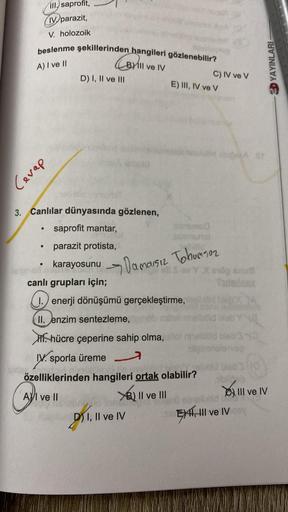 III. saprofit,
IV. parazit,
V. holozoik
beslenme şekillerinden hangileri gözlenebilir?
A) I ve II
B) III ve IV
C) IV ve V
D) I, II ve III
E) III, IV ve V
YAYINLARI
Cevap
3. Canlılar dünyasında gözlenen,
• saprofit mantar,
• parazit protista,
• karayosunu → Damarsız Tohumsuz
canlı grupları için;
I. enerji dönüşümü gerçekleştirme,
II. enzim sentezleme,
III. hücre çeperine sahip olma,
IV. sporla üreme →
özelliklerinden hangileri ortak olabilir?
A) I ve II
B) II ve III
C) III ve IV
D) I, II ve IV
E) II, III ve IV